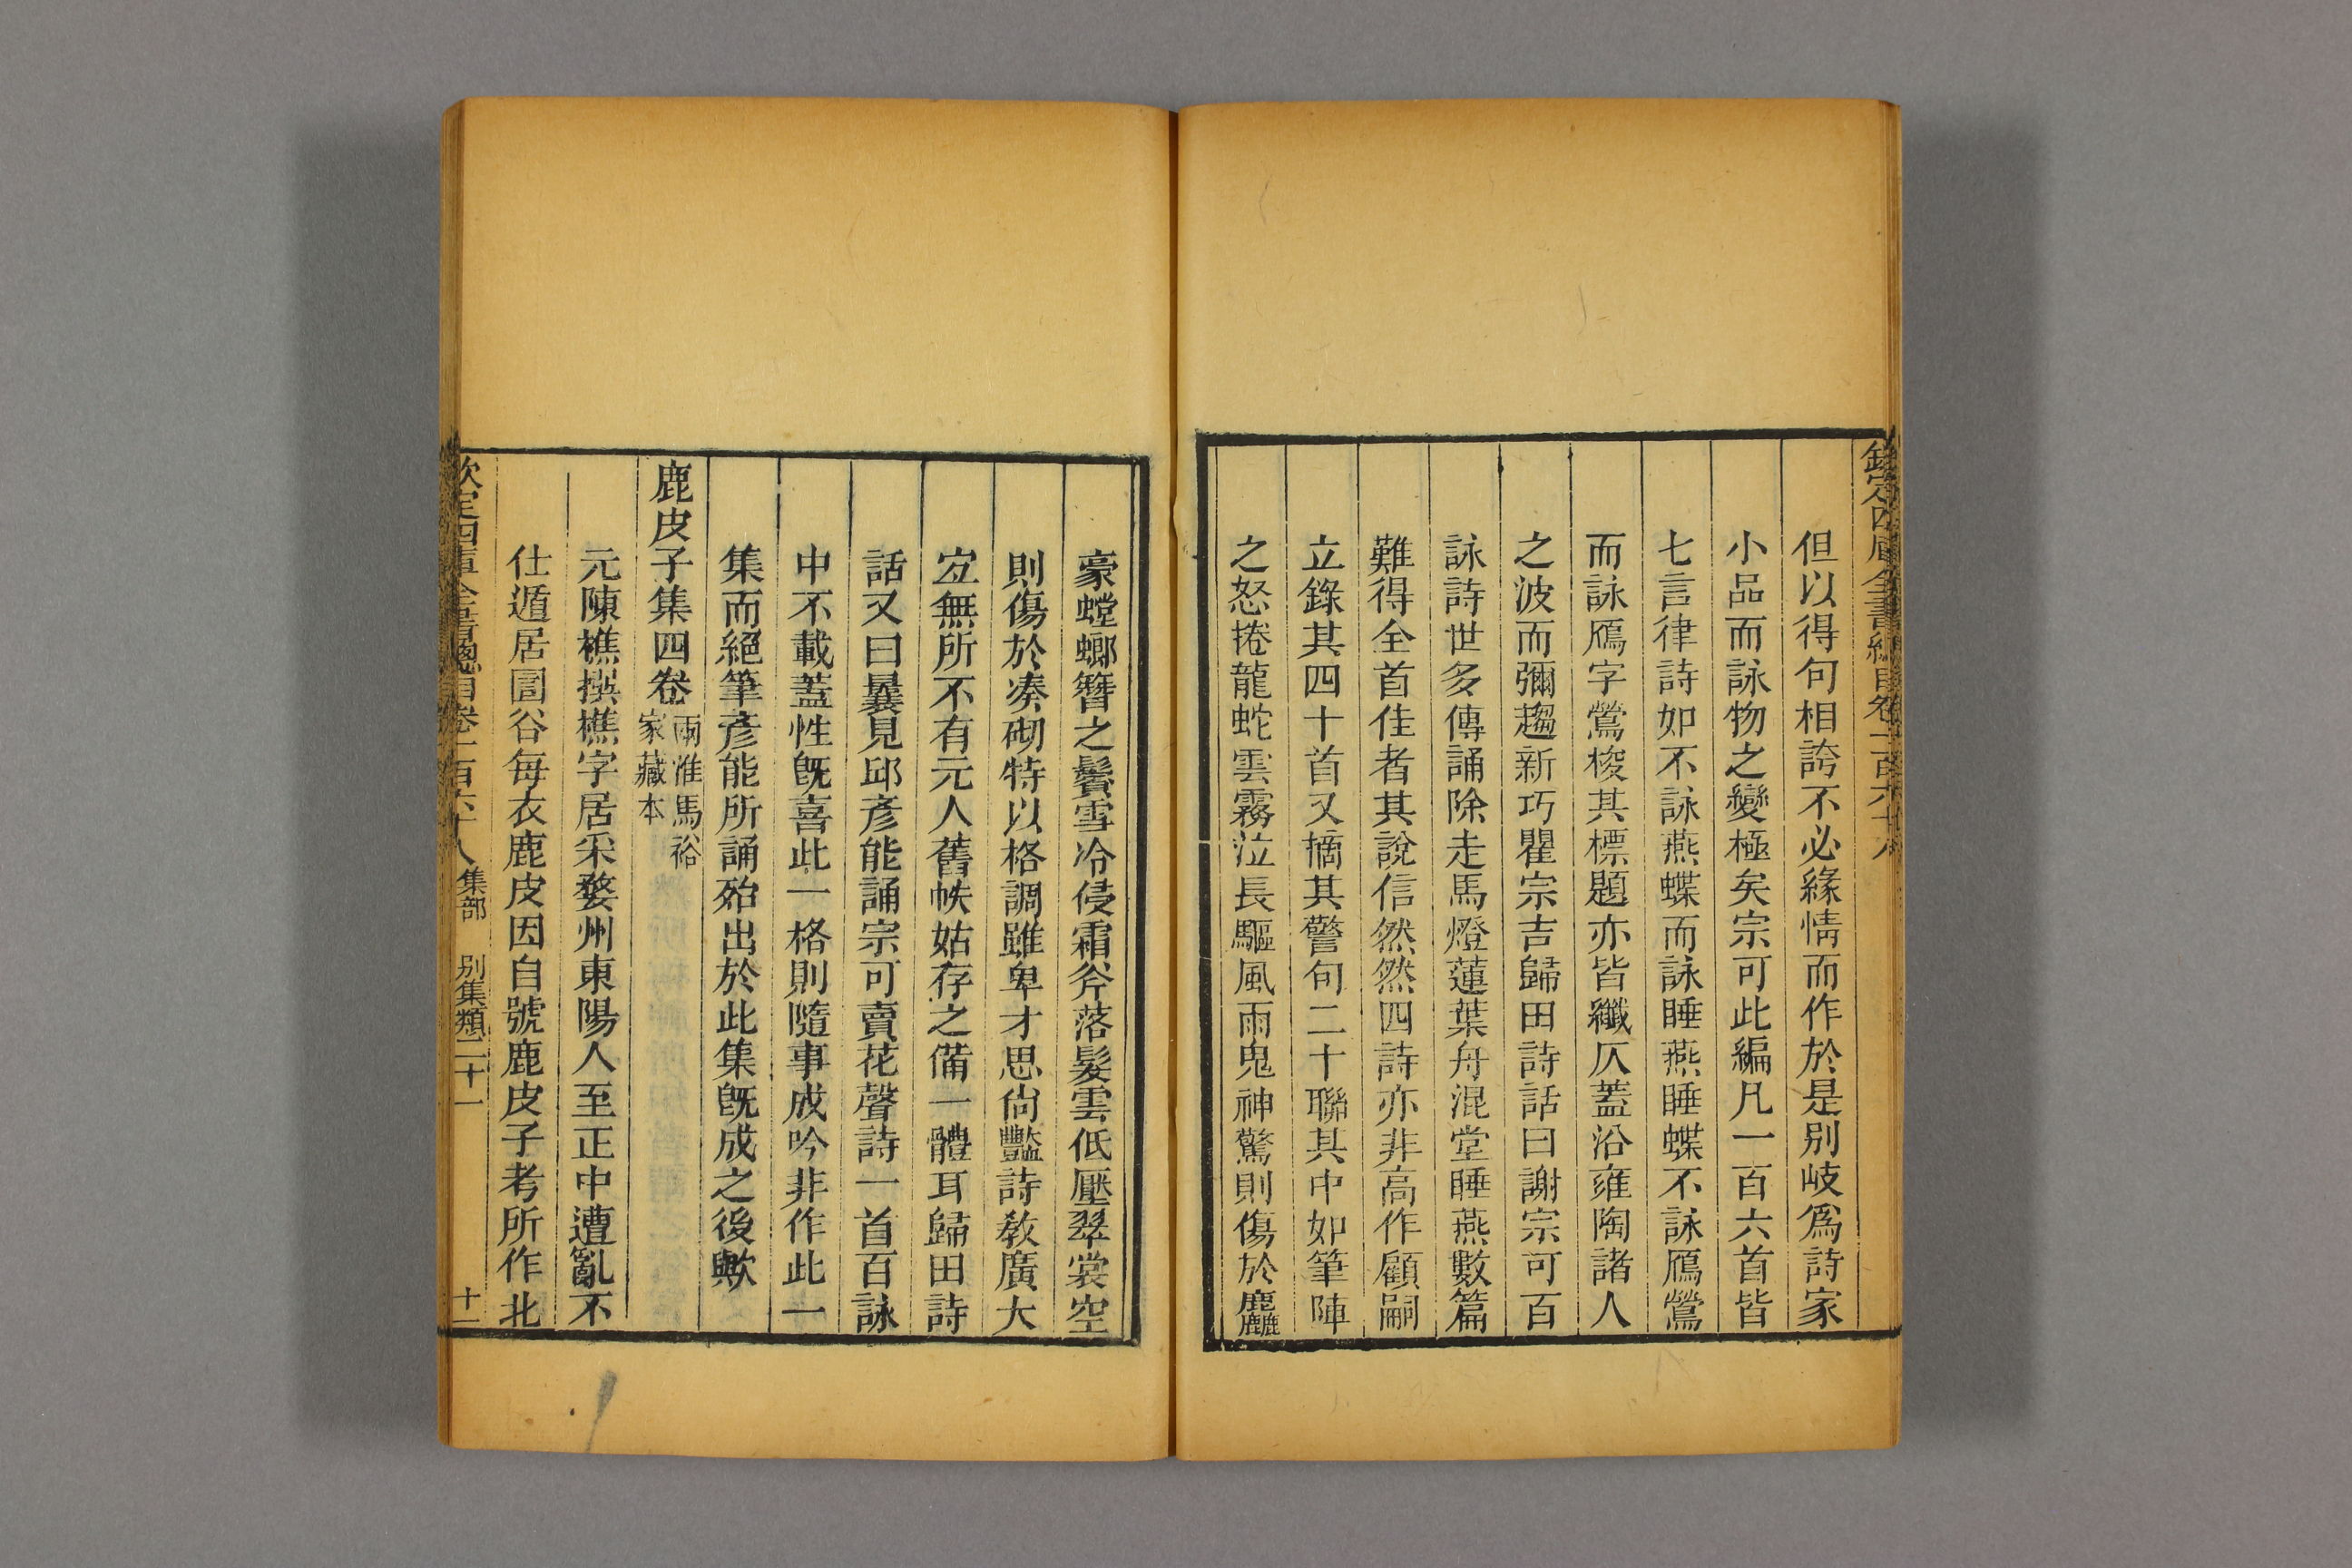 欽定四庫全書總目卷一百六十八
但以得句相誇不必緣情而作於是別岐爲詩家
小品而詠物之變極矣宗可此編凡一百六首皆
七言律詩如不詠燕蝶而詠睡燕睡蝶不詠鴈鶯
而詠鴈字鶯梭其標題亦皆纖仄蓋沿雍陶諸人
之波而彌趨新巧瞿宗吉歸田詩話曰謝宗可百
詠詩世多傳誦除走馬燈蓮葉舟混堂睡燕數篇
難得全首佳者其說信然然四詩亦非高作顧嗣
立錄其四十首又摘其警句二十聯其中如筆陣
之怒捲龍蛇雲霧泣長驅風雨鬼神驚則傷於麤
豪螳螂簪之鬢雪冷侵霜斧落髮雲低壓翠裳空
則傷於湊砌特以格調雖卑才思尙豔詩敎廣大
宐無所不有元人舊帙姑存之備一體耳歸田詩
話又曰曩見邱彥能誦宗可賣花聲詩一首百詠
中不載蓋性旣喜此一格則隨事成吟非作此一
集而絕筆彥能所誦殆出於此集旣成之後歟
鹿皮子集四卷 兩淮馬裕家藏本
元陳樵撰樵字居采婺州東陽人至正中遭亂不
仕遁居圁谷每衣鹿皮因自號鹿皮子考所作北
欽定四庫全書總目卷一百六十八 集部 別集類二十一 十一